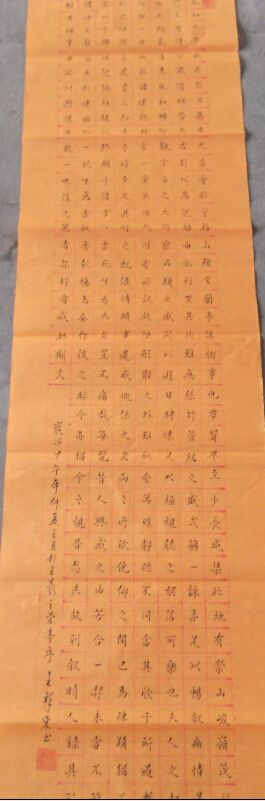 永和九年歲在癸丑暮春之初會於會稽山陰之蘭亭脩禊事也羣賢畢至少長咸集此地有崇山峻嶺茂
又有清流激湍映帶左右引以為流觴曲水列坐其次雖無絲竹管絃之盛一觴一詠亦足以暢敘幽情是
也天朗氣清惠風和暢仰觀宇宙之大俯察品類之盛所以遊目騁懷足以極視聽之娛信可樂也夫人之相
一世或取諸懷抱晤言一室之內或因寄所託放浪形骸之外雖取舍萬殊靜躁不同當其欣於所遇暫
己快然自足曾不知老之將至及其所之既惓情隨事遷感慨係之矣向之所欣俛仰之間已為陳跡猶不
懷況脩短隨化終期於盡古人云死生亦大矣豈不痛哉每覽昔人興感之由若合一契未嘗不臨
喻之於懷固知一死生為虛誕齊彭殤為妄作後之視今亦猶今之視昔悲夫故列敘時人錄其所
世殊事異所以興懷其致一也後之覽者亦將有感於斯文
歲次甲午年仲夏之月抄王羲之蘭亭序